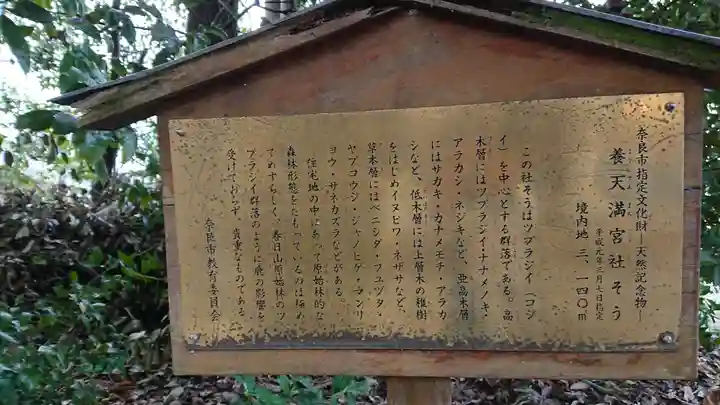 奈良市指定文化財―天然記念物―
養天満宮社そう
平成元年三月七日指定
境内地 三、一四〇m
この社そうはツブラジイ(コジ
イ)を中心とする群落である。高
木層にはツブラジイ・ナナメノキ・
アラカシ・ネジキなど、亜高木層
にはサカキ・カナメモチ・アラカ
シなど、低木層には上層木の稚樹
をはじめイヌビワ・ネザサなど、
草木層にはベニシダ・フユヅタ・
ヤブコウジ・ジャノヒゲ・マンリ
ョウ・サネカズラなどがある。
住宅地の中にあって原始林的な
森林形態をたもっているのは極め
てめずらしく、春日山原始林のツ
ブラジイ群落のように鹿の影響を
受けておらず、貴重なものである。
奈良市教育委員会